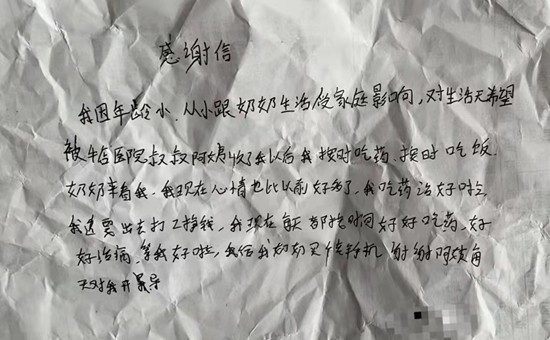 感谢信
我因年龄小,从小跟奶奶生活受家庭影响,对生活无希望
被结医院叔叔阿姨收了我以后我按时吃药、按时吃饭.
奶奶幸看我.我现在心情也比以前好多了,我吃药治好啦
我还要出去打工挣钱,我现在每天都按时间好好吃药、好
好治病.等我好啦,我给我奶奶买手机 谢谢阿
天对我开导